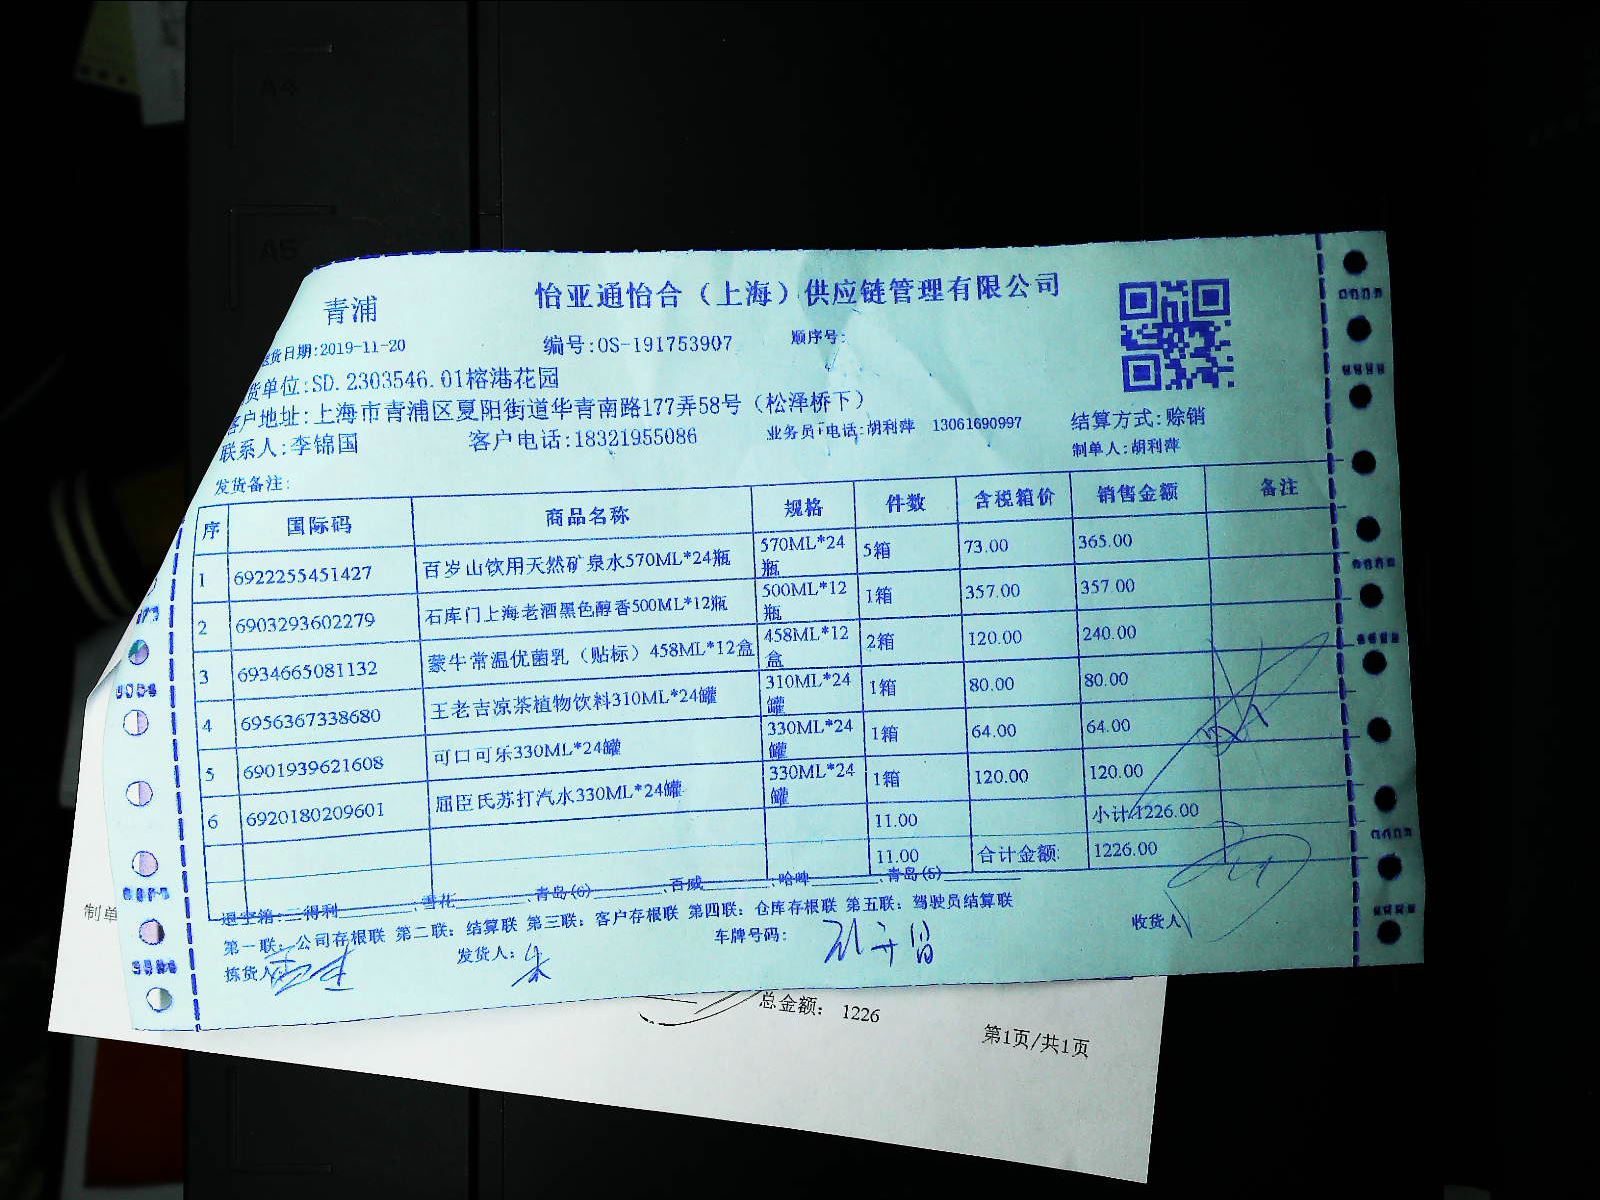 A4
A5
青浦
怡亚通怡合（上海）供应链管理有限公司
货日期:2019-11-20
编号:OS-191753907
顺序号:
货单位:SD.2303546.01榕港花园
客户地址:上海市青浦区夏阳街道华青南路177弄58号（松泽桥下）
联系人:李锦国
客户电话:18321955086
业务员/电话:胡利萍 13061690997
结算方式:赊销
制单人:胡利萍
发货备注:
序 国际码 商品名称 规格 件数 含税箱价 销售金额 备注
1 6922255451427 百岁山饮用天然矿泉水570ML*24瓶 570ML*24瓶 5箱 73.00 365.00
2 6903293602279 石库门上海老酒黑色醇香500ML*12瓶 500ML*12瓶 1箱 357.00 357.00
3 6934665081132 蒙牛常温优菌乳（贴标）458ML*12盒 458ML*12盒 2箱 120.00 240.00
4 6956367338680 王老吉凉茶植物饮料310ML*24罐 310ML*24罐 1箱 80.00 80.00
5 6901939621608 可口可乐330ML*24罐 330ML*24罐 1箱 64.00 64.00
6 6920180209601 屈臣氏苏打汽水330ML*24罐 330ML*24罐 1箱 120.00 120.00
11.00 小计:1226.00
11.00 合计金额: 1226.00
退空箱: 得利 雪花 青岛(6) 百威 哈啤 青岛(5)
第一联：公司存根联 第二联：结算联 第三联：客户存根联 第四联：仓库存根联 第五联：驾驶员结算联
拣货人:
发货人:
车牌号码:
收货人
制单
总金额： 1226
第1页/共1页